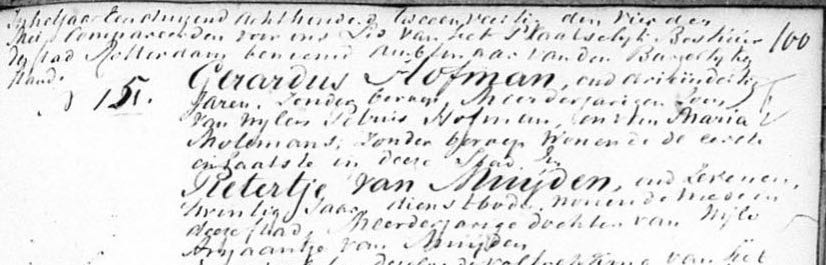 In het Jaar Een duizend Achthonderd tweeenveertig den vierden
Mei, Compareerden voor ons Lid van het Plaatselijk Bestuur 100
der stad Rotterdam benoemd Ambtenaar van den Burgerlyke
Stand.
N 151. Gerardus Hofman, oud driendertig
Jaren, zonder beroep, Meerderjarigen Zoon
van wylen Petrus Hofman, en van Maria
Molemans, zonder beroep wonende de eerste
en laatste in deze Stad, En
Pietertje van Muyden, oud zevenen,
twintig Jaar, dienstbode, wonende mede in
deze stad, Meerderjarige dochter van Wyle
Arjaantje van Muyden
voltrekking van het